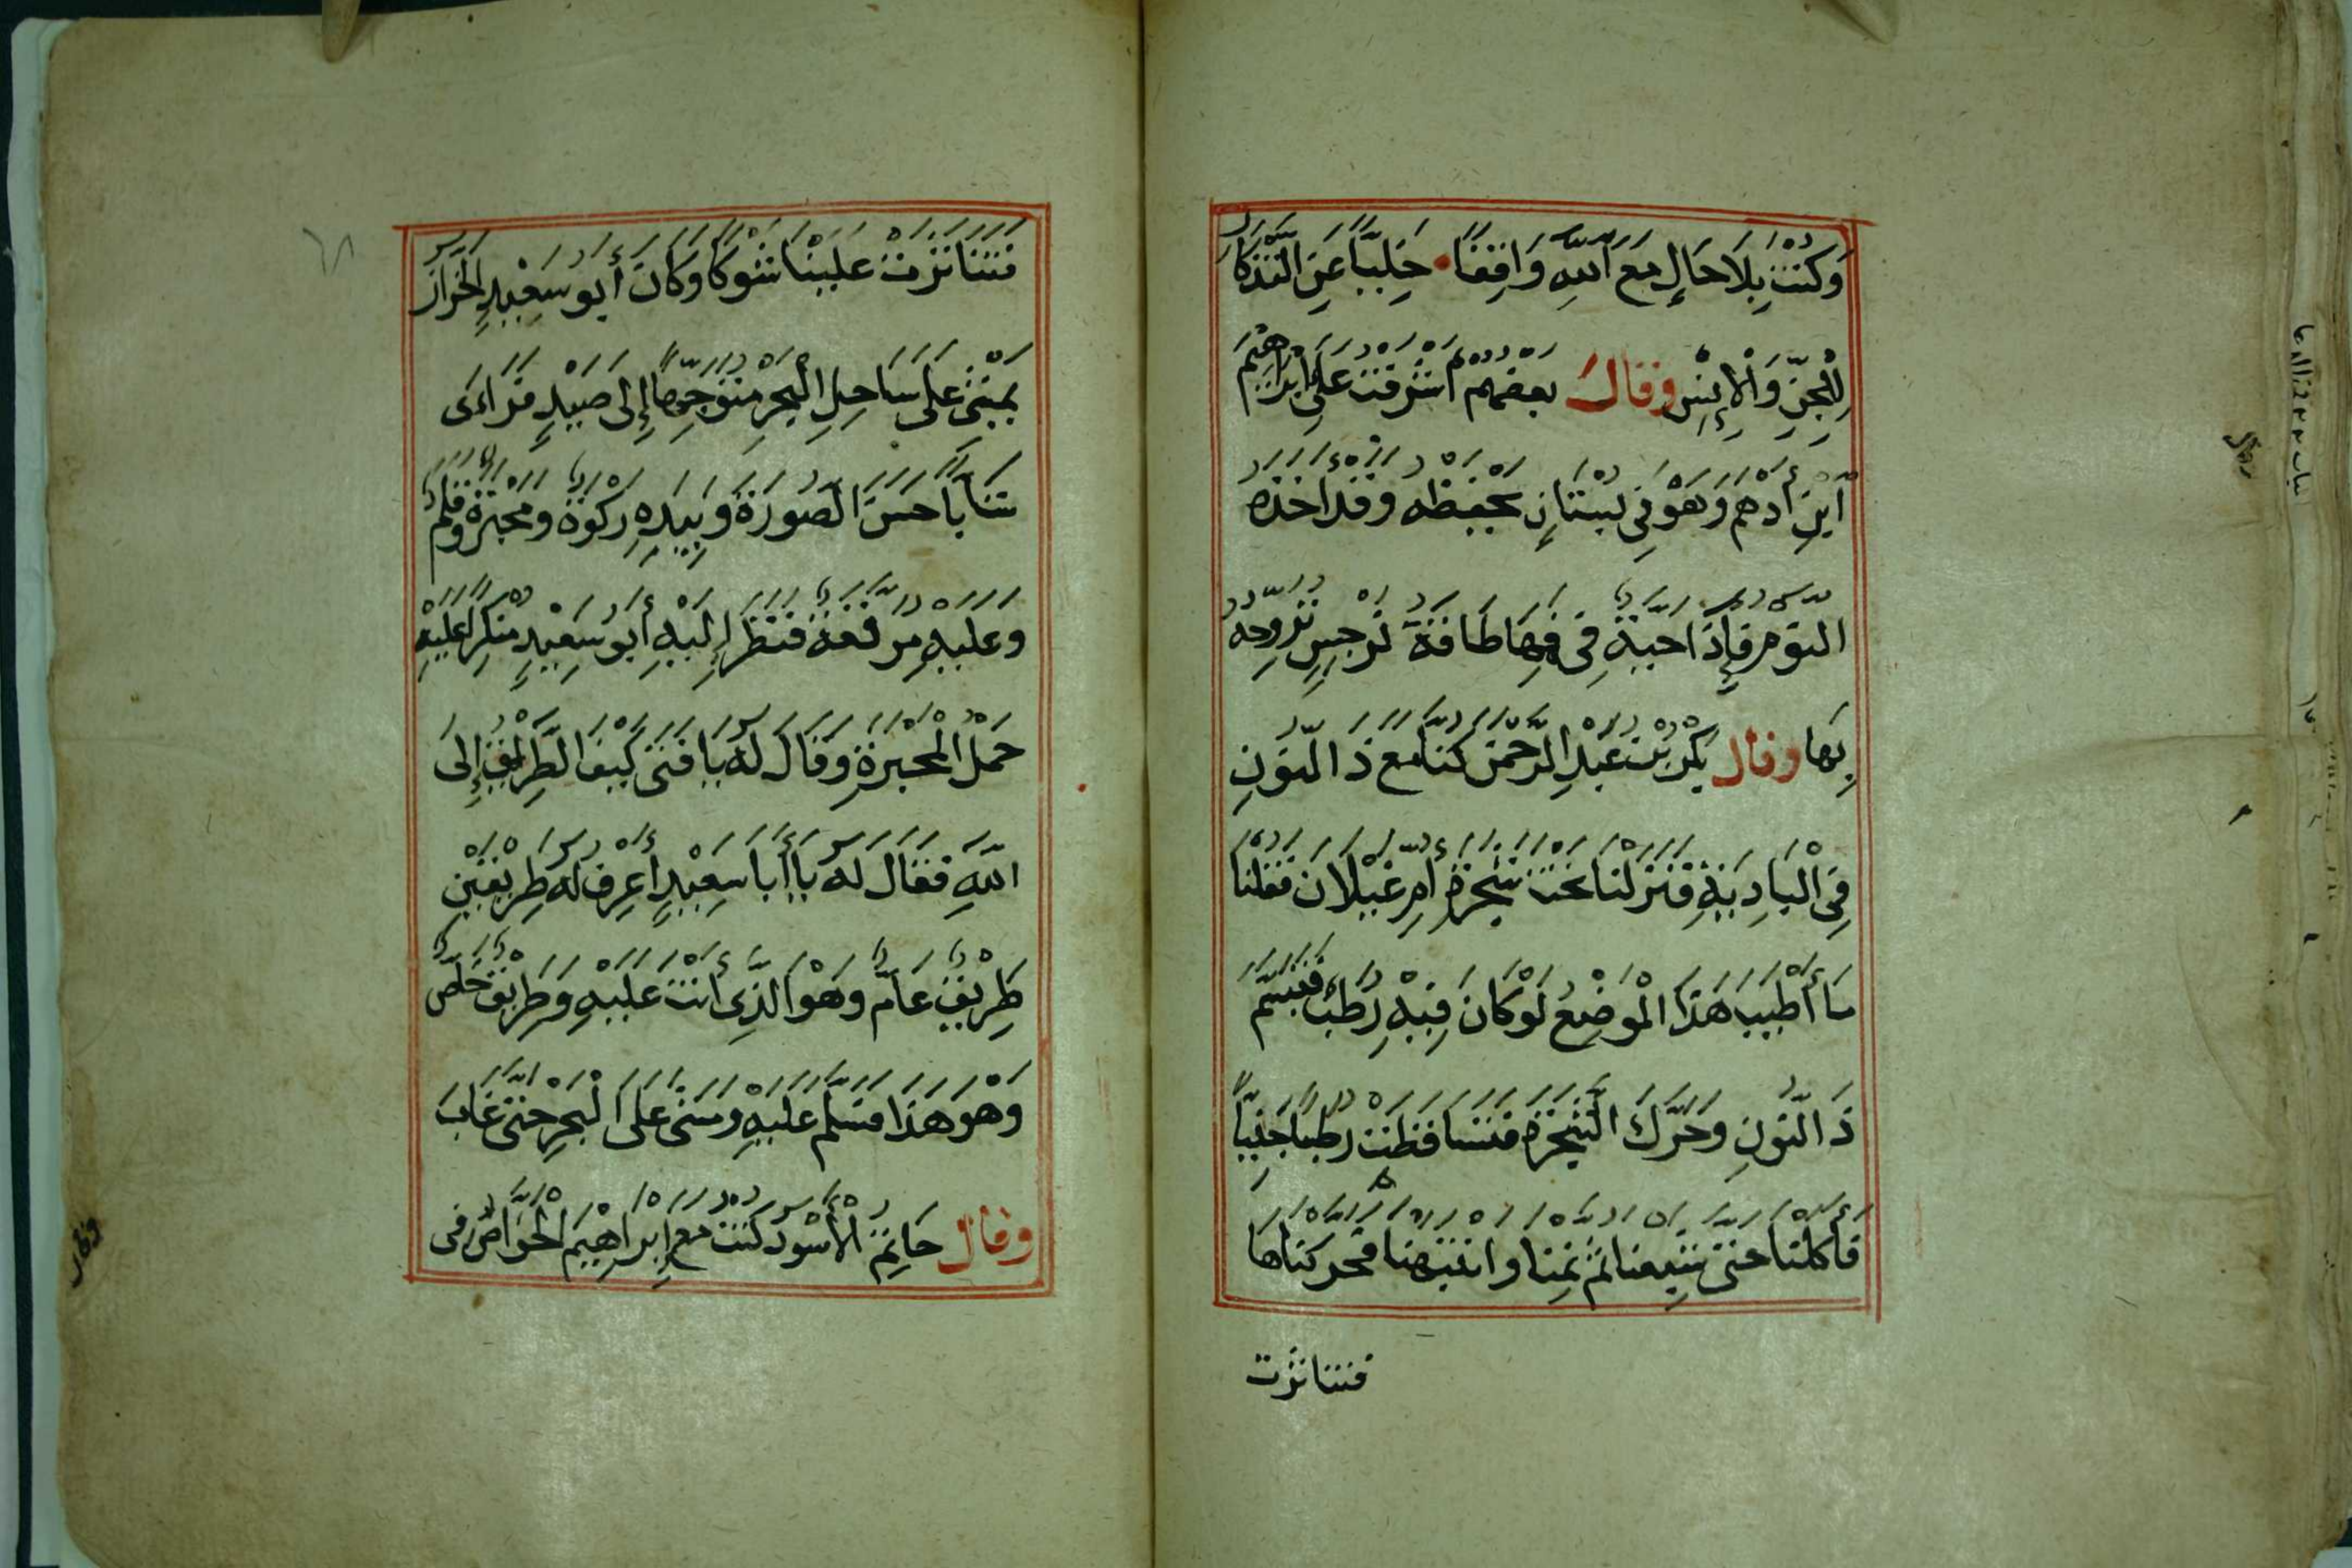 وَكُنْتُ بِلَا حَالٍ مَعَ اللّٰهِ وَاقِفًا خَلِيًّا عَنِ التَّذْكَارِ
لِلْجِنِّ وَالْإِنْسِ وقال بعضهم اشرفت على ابراهيم
ابن أدهم وهو في بستان يحفظه وقد اخذه
النوم فإذا حية في فيها طاقة نرجس تروحه
بها وقال بكر بن عبد الرحمن كنا مع ذا النون
في البادية فنزلنا تحت شجرة أم غيلان فقلنا
ما أطيب هذا الموضع لو كان فيه رطب فتبسم
ذا النون وحرك الشجرة فتساقطت رطبا جنيا
فأكلنا حتى شبعنا ثم نمنا وانتبهنا فحركناها
فتناثرت
٦٨
فتناثرت علينا شوكا وكان أبو سعيد الخراز
يمشي على ساحل البحر متوجها إلى صيد فراءى
شابا حسن الصورة وبيده ركوة ومحبرة وقلم
وعليه مرقعة فنظر إليه أبو سعيد منكرا عليه
حمل المحبرة وقال له يا فتى كيف الطريق إلى
اللّٰه فقال له يا أبا سعيد أعرف له طريقين
طريق عام وهو الذي أنت عليه وطريق خاص
وهو هذا فسلم عليه ومشى على البحر حتى غاب
وقال حاتم الأسود كنت مع إبراهيم الخواص في
وقف